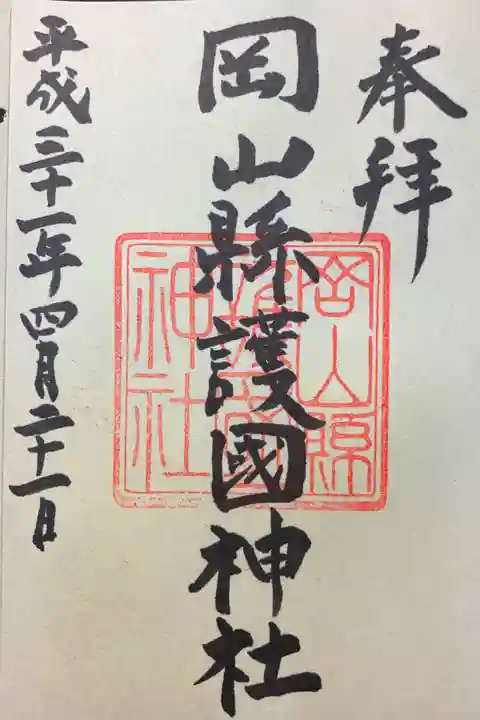 奉拜
岡山縣護國神社
岡山縣護國神社
平成三十一年四月二十一日